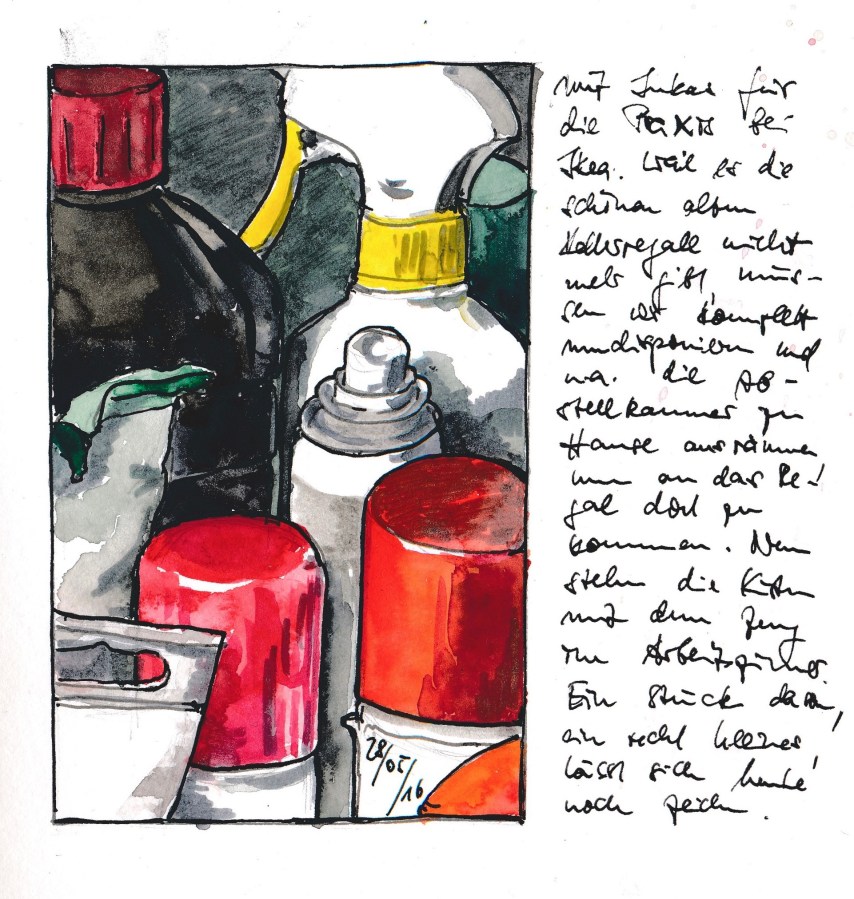 mit Lukas für
die Praxis bei
Ikea. Weil es die
schönen alten
Kellerregale nicht
mehr gibt müs-
sen wir komplett
umdisponieren und
u.a. die Ab-
stellkammer zu
Hause ausräumen
um an das Re-
gal dort zu
kommen. Nun
stehen die Kisten
mit dem Zeug
im
Ein Stück davon,
ein recht kleines,
lässt sich heute
noch zeichnen.
28/05/16